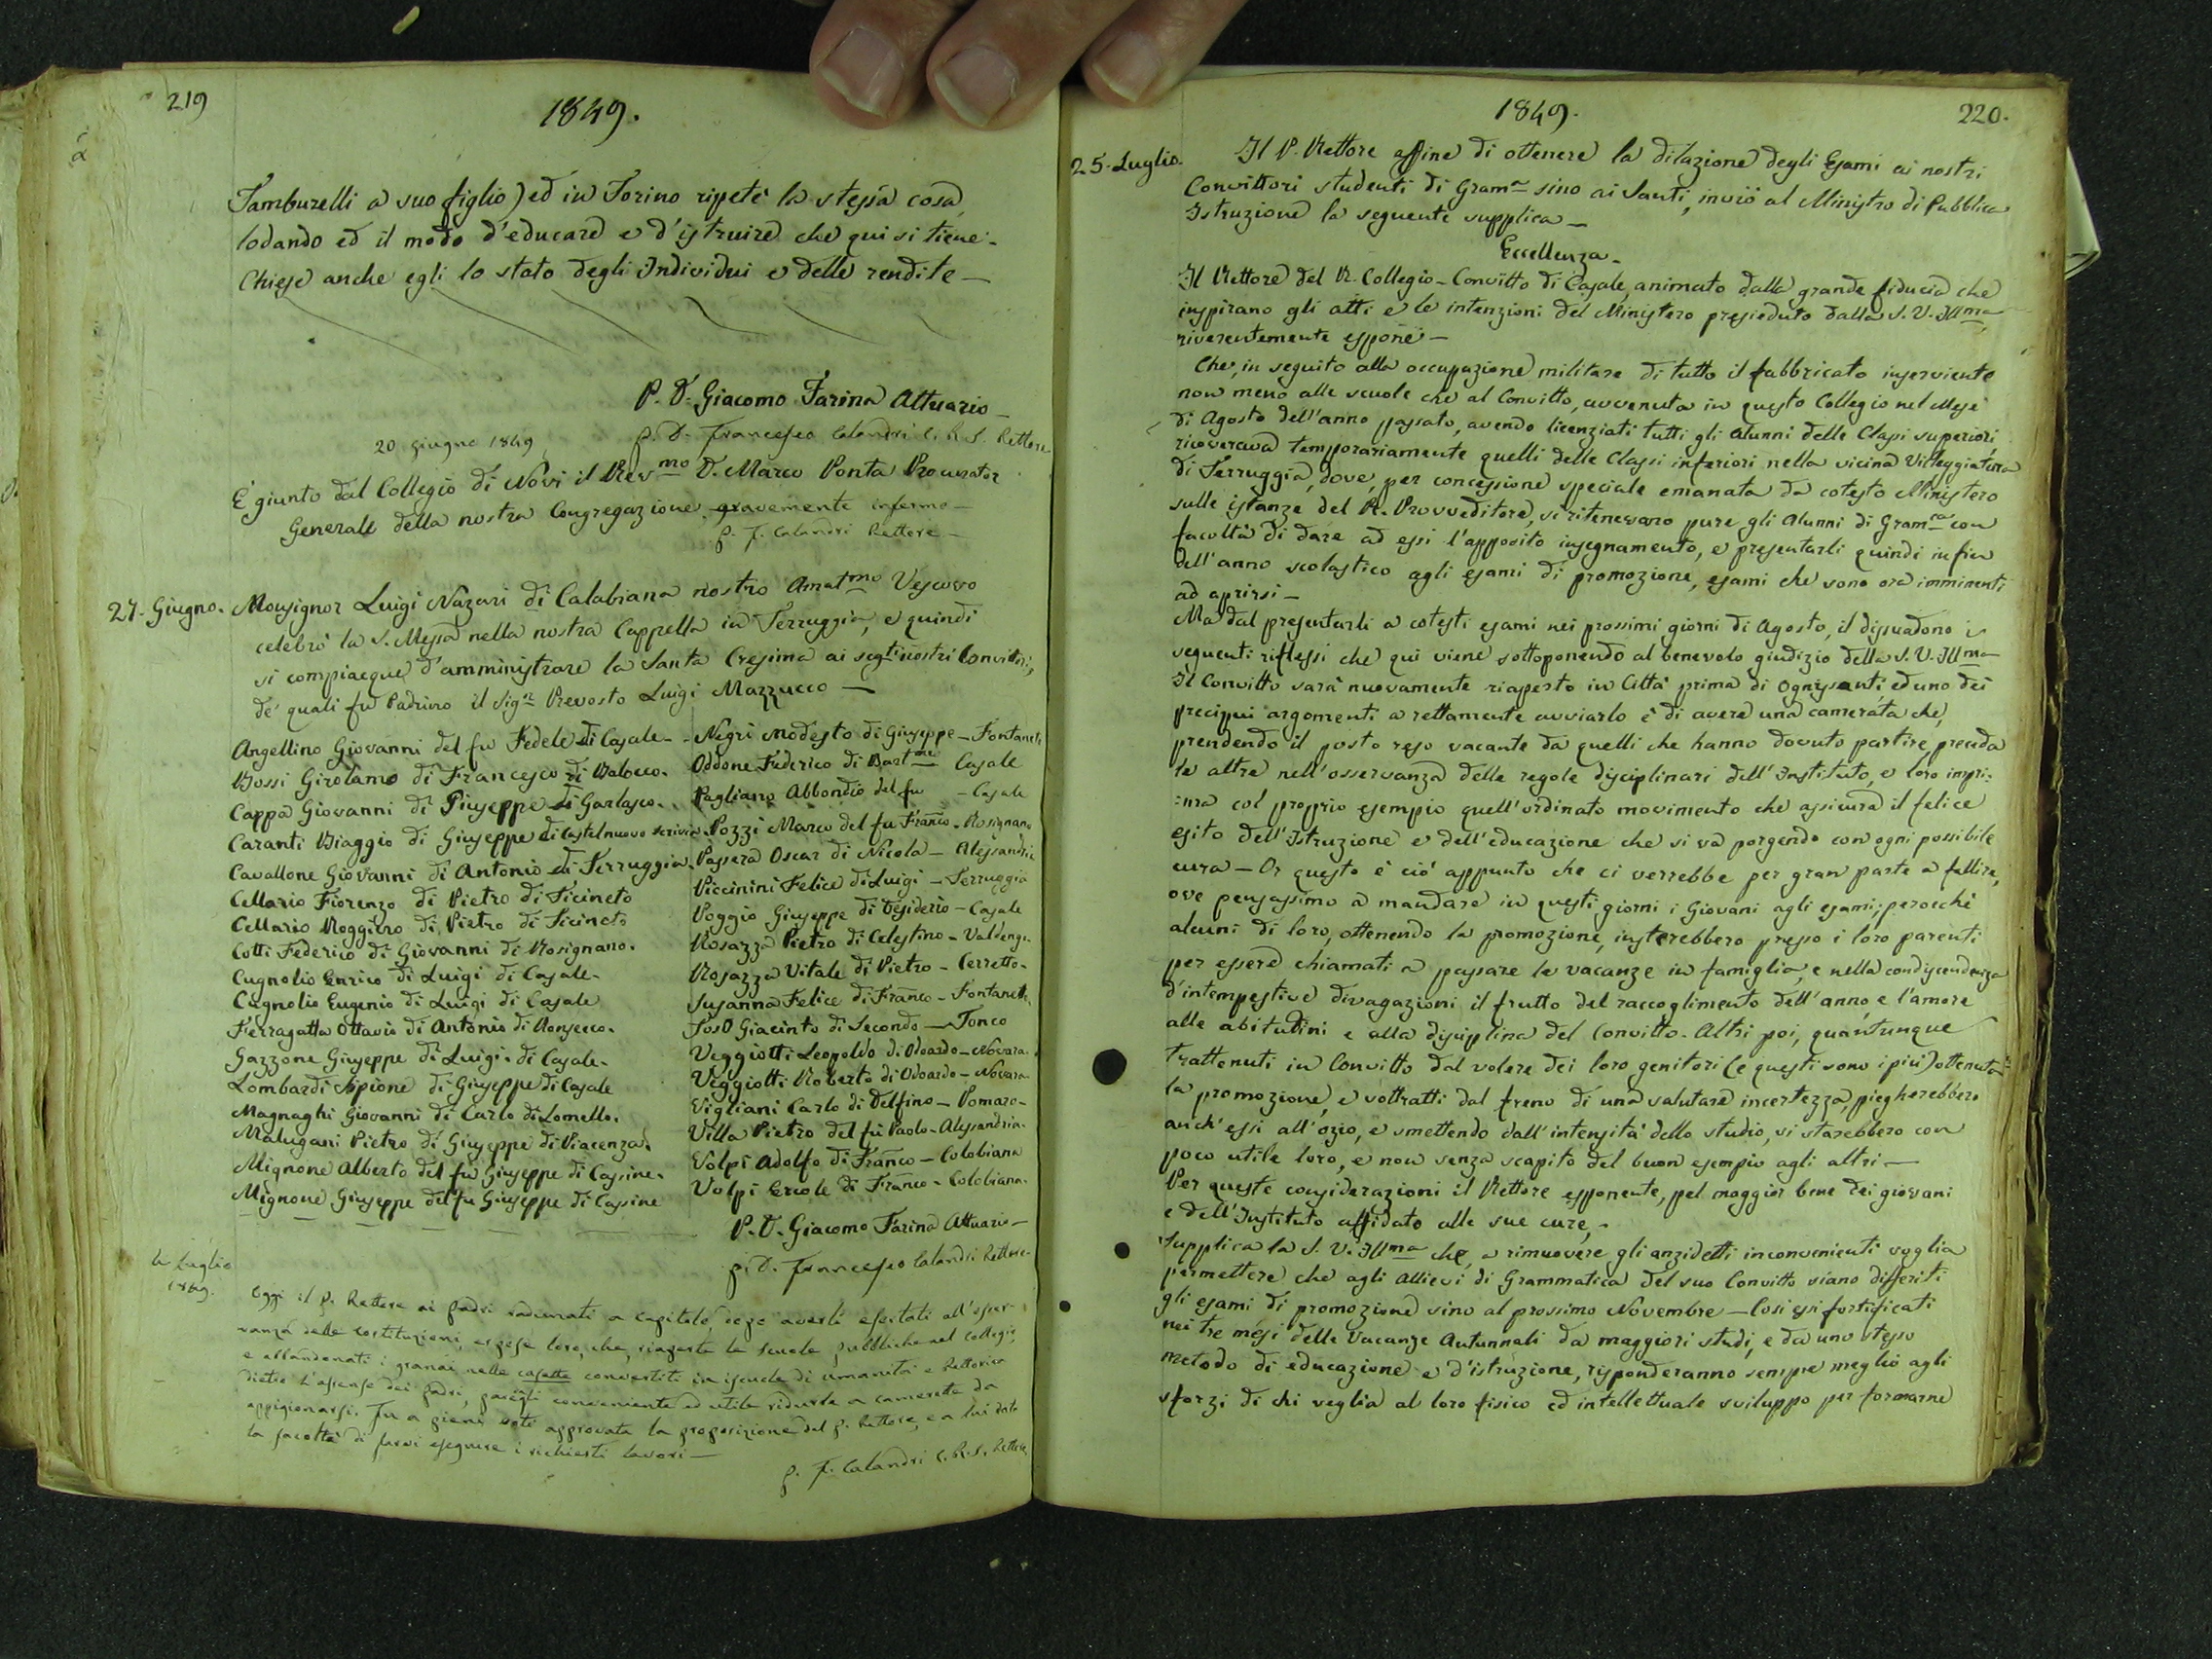 219
1849.
Tamburelli a suo figlio) ed in Torino ripetè la stessa cosa,
lodando ed il modo d'educare e d'istruire che qui si tiene.
Chiese anche egli lo stato degli Individui e delle rendite —
P. D. Giacomo Farina Attuario —
p. D. Francesco Calandri C. R. S. Rettore
20 giugno 1849
È giunto dal Collegio di Novi il Revmo D. Marco Ponta Procurator
Generale della nostra Congregazione gravemente infermo —
p. F. Calandri Rettore —
27. Giugno. Monsignor Luigi Nazari di Calabiana nostro Amatmo Vescovo
celebrò la S. Messa nella nostra Cappella in Terruggia, e quindi
si compiacque d'amministrare la Santa Cresima ai segti nostri Convittori,
de' quali fu Padrino il Sigr Prevosto Luigi Mazzucco —
Angellino Giovanni del fu Fedele di Casale —
Bossi Girolamo di Francesco di Balocco.
Cappa Giovanni di Giuseppe di Garlasco.
Caranti Biaggio di Giuseppe di Castelnuovo Scrivia.
Cavallone Giovanni di Antonio di Terruggia.
Cellario Fiorenzo di Pietro di Ticineto
Cellario Roggiero di Pietro di Ticineto
Cotti Federico di Giovanni di Rosignano.
Cugnolio Enrico di Luigi di Casale.
Cugnolio Eugenio di Luigi di Casale
Ferragatta Ottavio di Antonio di Ronsecco.
Gazzone Giuseppe di Luigi di Casale.
Lombardi Scipione di Giuseppe di Casale
Magnaghi Giovanni di Carlo di Lomello.
Malugani Pietro di Giuseppe di Piacenza.
Mignone Alberto del fu Giuseppe di Cassine.
Mignone Giuseppe del fu Giuseppe di Cassine
Negri Modesto di Giuseppe — Fontaneto
Oddone Federico di Bartmeo Casale
Pagliano Abbondio del fu — Casale
Pozzi Marco del fu Franco — Rosignano
Passera Oscar di Nicola — Alessandria
Piccinini Felice di Luigi — Terruggia
Poggio Giuseppe di Desiderio — Casale
Rosazza Pietro di Celestino — Valdengo.
Rosazza Vitale di Pietro — Cerretto.
Susanna Felice di Franco — Fontaneto.
Soso Giacinto di Secondo — Tonco
Veggiotti Leopoldo di Odoardo — Novara.
Veggiotti Roberto di Odoardo — Novara.
Vigliani Carlo di Delfino — Pomaro —
Villa Pietro del fu Paolo — Alessandria.
Volpi Adolfo di Franco — Colobiana
Volpi Ercole di Franco — Colobiana.
P. D. Giacomo Farina Attuario —
p. D. Francesco Calandri Rettore —
Luglio
1849.
Oggi il p. Rettore ai padri radunati a capitolo, dopo averli esortati all'osser-
vanza delle costituzioni, espose loro, che, riaperte le scuole pubbliche nel collegio,
e abbandonati i granai nelle casette convertiti in iscuole di umanità e Rettorica
dietro l'assenso dei padri, pareagli conveniente ed utile ridurle a camerette da
appigionarsi. Fu a pieni voti approvata la proposizione del p. Rettore, e a lui data
la facoltà di farvi eseguire i richiesti lavori —
p. F. Calandri C. R. S. Rettore
1849.
220.
25. Luglio. Il P. Rettore affine di ottenere la dilazione degli Esami ai nostri
Convittori studenti di Grama sino ai Santi, inviò al Ministro di Pubblica
Istruzione la seguente supplica —
Eccellenza —
Il Rettore del R. Collegio-Convitto di Casale, animato dalla grande fiducia che
inspirano gli atti e le intenzioni del Ministero presieduto dalla S. V. Illma,
riverentemente espone —
Che, in seguito alla occupazione militare di tutto il fabbricato inserviente
non meno alle scuole che al Convitto, avvenuta in questo Collegio nel Mese
di Agosto dell'anno passato, avendo licenziati tutti gli Alunni delle Classi superiori,
ricoverava temporariamente quelli delle Classi inferiori nella vicina Villeggiatura
di Terruggia, dove, per concessione speciale emanata da cotesto Ministero
sulle istanze del R. Provveditore, si ritenevano pure gli Alunni di Gramca con
facoltà di dare ad essi l'apposito insegnamento, e presentarli quindi in fin
dell'anno scolastico agli esami di promozione, esami che sono ora imminenti
ad aprirsi —
Ma dal presentarli a cotesti esami nei prossimi giorni di Agosto, il dissuadono i
seguenti riflessi che qui viene sottoponendo al benevolo giudizio della S. V. Illma
Il Convitto sarà nuovamente riaperto in Città prima di Ognissanti ed uno dei
precipui argomenti a rettamente avviarlo è di avere una camerata che,
prendendo il posto reso vacante da quelli che hanno dovuto partire, preceda
le altre nell'osservanza delle regole disciplinari dell'Instituto, e loro impri-
:ma col proprio esempio quell'ordinato movimento che assicura il felice
esito dell'Istruzione e dell'educazione che si va porgendo con ogni possibile
cura — Or questo è ciò appunto che ci verrebbe per gran parte a fallire,
ove pensassimo a mandare in questi giorni i Giovani agli esami; perocchè
alcuni di loro, ottenendo la promozione, insterebbero presso i loro parenti
per essere chiamati a passare le vacanze in famiglia, e nella condiscendenza
d'intempestive divagazioni il frutto del raccoglimento dell'anno, e l'amore
alle abitudini e alla disciplina del Convitto. Altri poi, quantunque
trattenuti in Convitto dal volere dei loro genitori (e questi sono i più) ottenuta
la promozione, e sottratti dal freno di una salutare incertezza, piegherebbero
anch'essi all'ozio, e smettendo dall'intensità dello studio, si starebbero con
poco utile loro, e non senza scapito del buon esempio agli altri —
Per queste considerazioni il Rettore esponente, pel maggior bene dei giovani
e dell'Instituto affidato alle sue cure, —
Supplica la S. V. Illma che, a rimuovere gli anzidetti inconvenienti voglia
permettere che agli Allievi di Grammatica del suo Convitto siano differiti
gli esami di promozione sino al prossimo Novembre — Così essi fortificati
nei tre mesi delle Vacanze Autunnali da maggiori studi, e da uno stesso
metodo di educazione e d'istruzione, risponderanno sempre meglio agli
sforzi di chi veglia al loro fisico ed intellettuale sviluppo per formarne